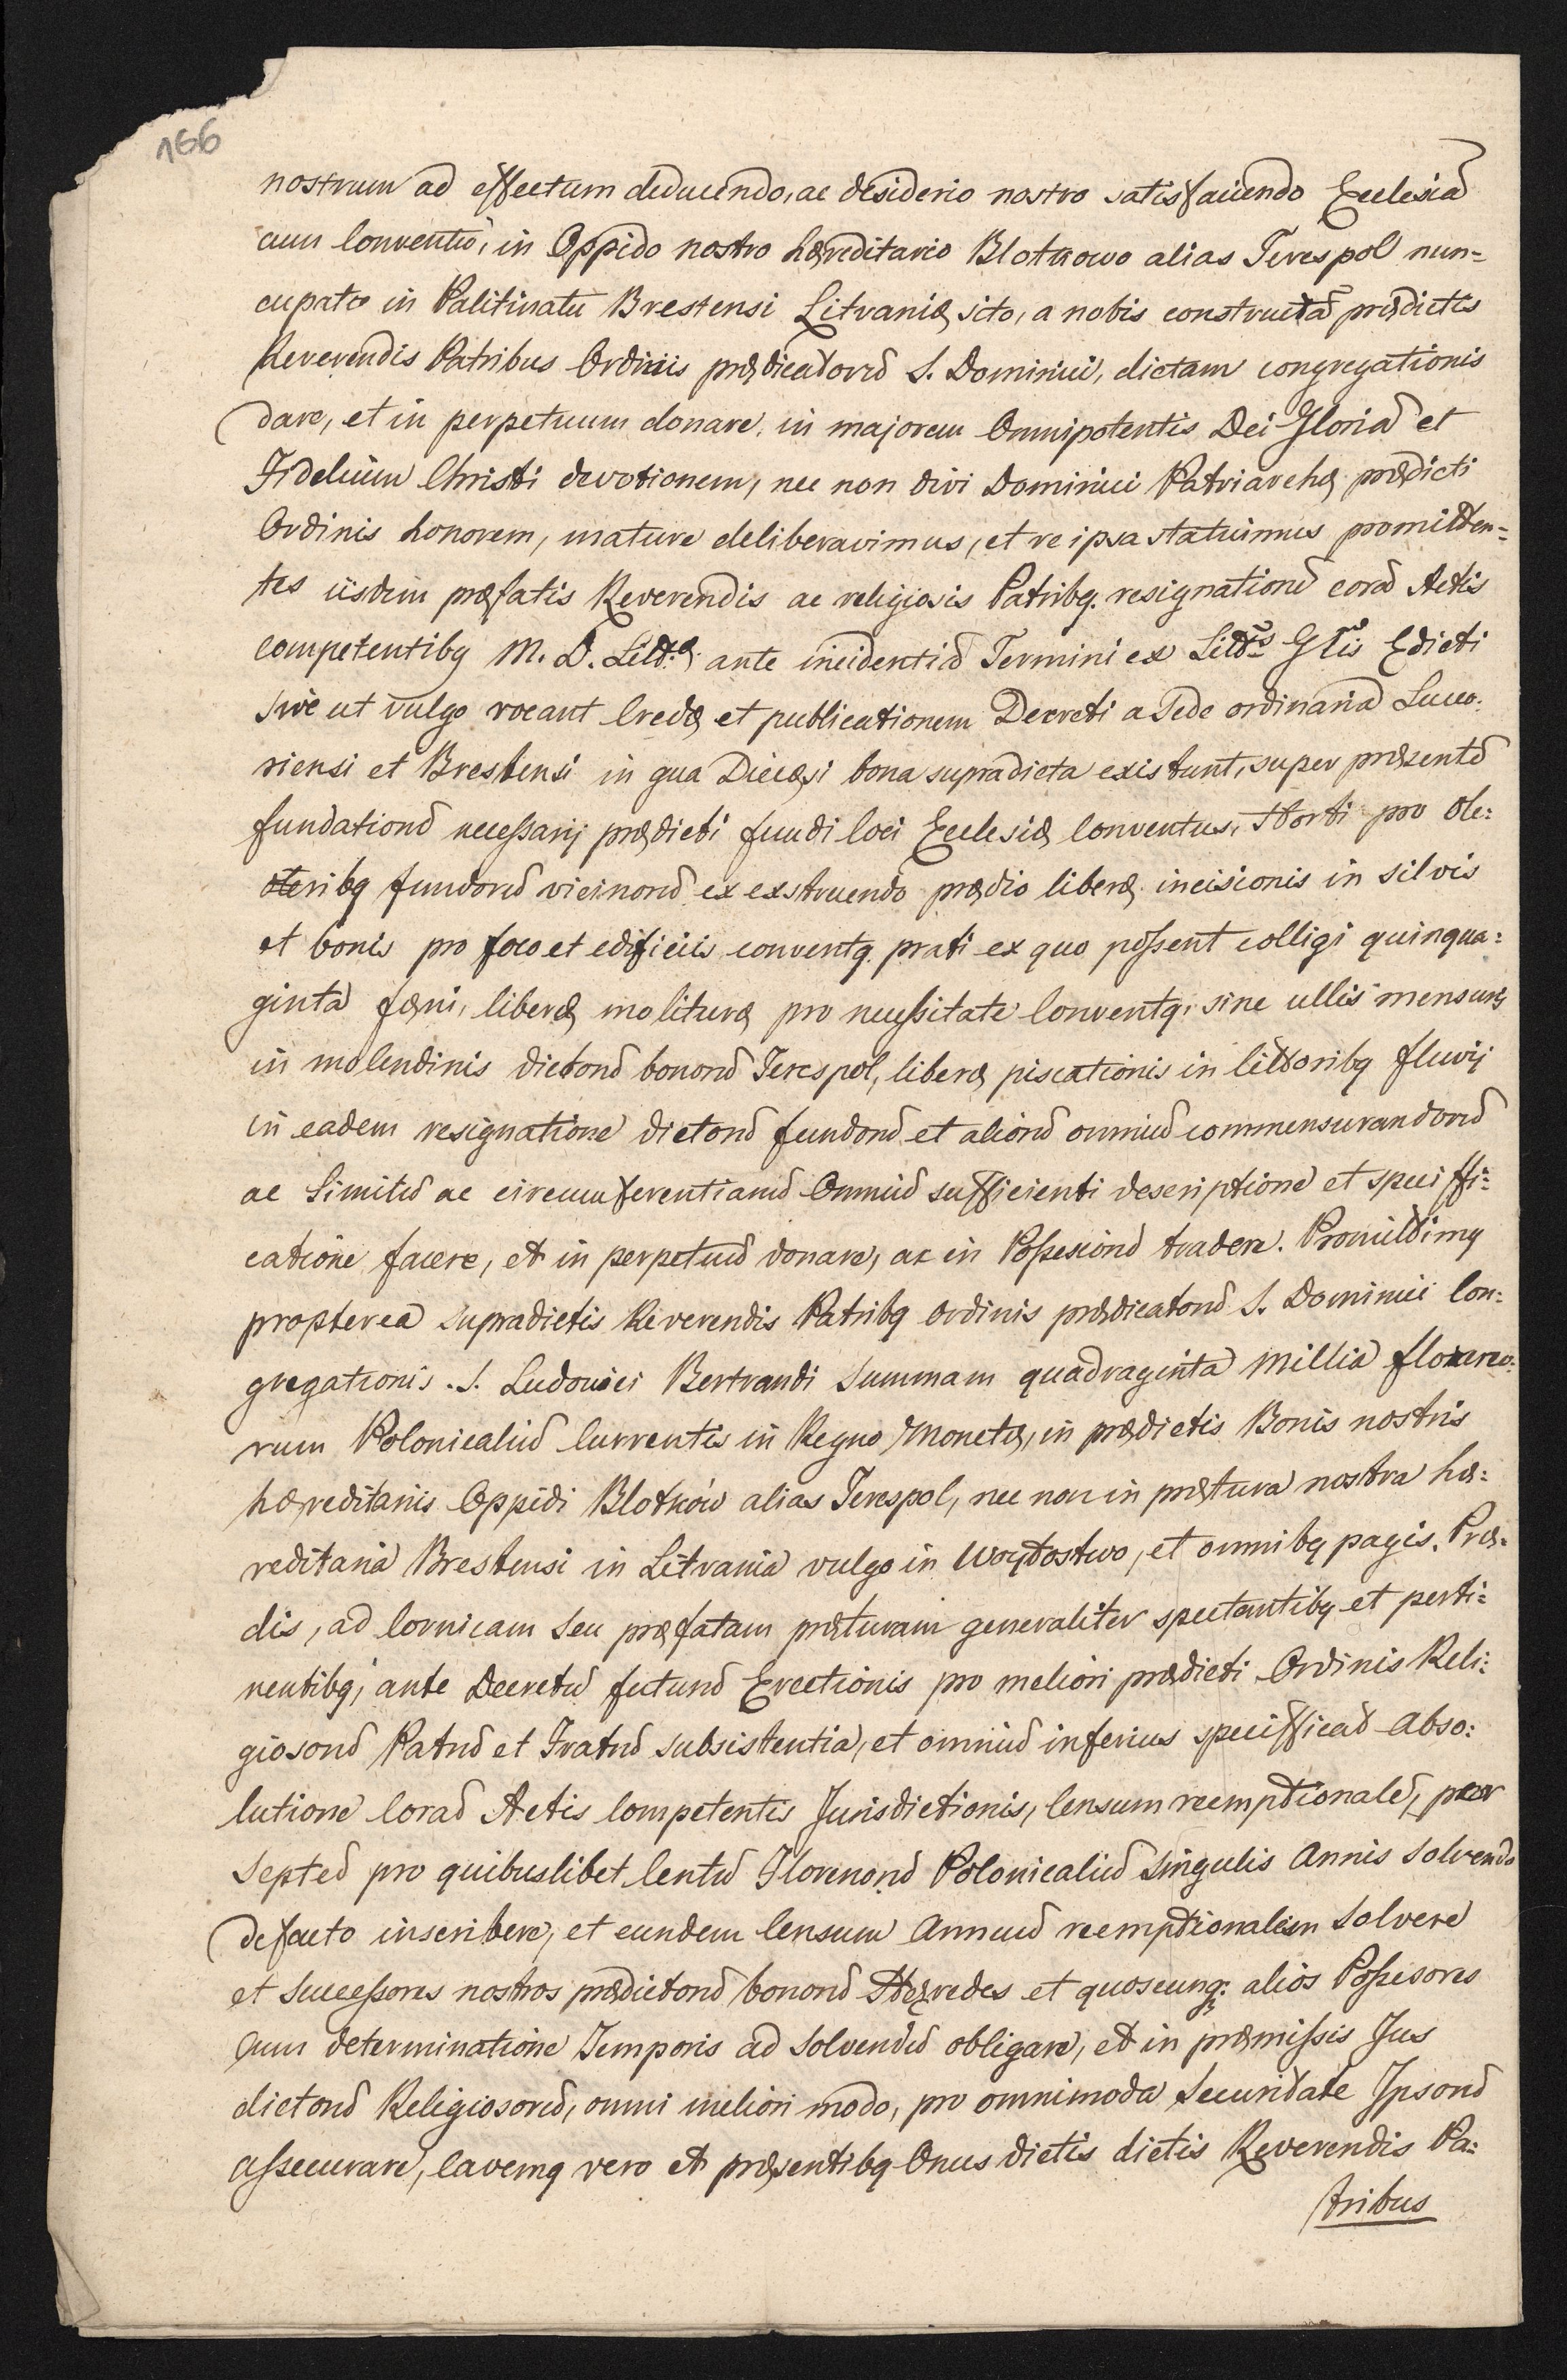 166
nostrum ad effectum deducendo, ac desiderio nostro satisfaciendo Ecclesiã
cum Conventu, in Oppido nostro hæreditario Blotkowo alias Terespol nun=
cupato in Palitinatu Brestensi Litvaniæ sito, a nobis constructã prædictis
Reverendis Patribus Ordinis prædicatorũ S. Dominici, dictam congregationis
dare, et in perpetuum donare, in majorem Omnipotentis Dei Gloriã et
Fidelium Christi devotionem, nec non divi Dominici Patriarchæ prædicti
Ordinis honorem, mature deliberavimus, et re ipsa statuimus promitten=
tes iisdem præfatis Reverendis ac religiosis Patribq. resignationẽ corã Actis
competentibq M. D. Litt:æ ante incidentiã Termini ex Littis Gtis Edicti
sive ut vulgo vocant Credæ et publicationem Decreti a Sede ordinariã Luceo:
riensi et Brestensi in qua Diecæsi bona supradicta existunt, super præsentẽ
fundationẽ necessarij prædicti fundi loci Ecclesiæ Conventus, Horti pro Ole:
ribq fundorũ vicinorũ ex exstruendo prædio liberæ incisionis in silvis
et bonis pro foco et edificiis conventq. prati ex quo possent colligi quinqua:
ginta fæni, liberæ molituræ pro necessitate Conventq, sine ullis mensuris
in molendinis dictorũ bonorũ Terespol, liberæ piscationis in littoribq fluvij
in eadem resignatione dictorũ fundorũ et aliorũ omniũ commensurandorũ
ac limitũ ac circumferentiarũ Omniũ sufficienti descriptione et speciffi:
catione facere, et in perpetuũ donare, ac in Possesionẽ tradere. Promittimq
propterea supradictis Reverendis Patribq Ordinis prædicatorũ S. Dominici Con:
gregationis S. Ludovici Bertrandi Summam quadraginta Millia floreno:
rum Polonicaliũ Currentis in Regno Monetæ, in prædictis Bonis nostris
hæreditariis Oppidi Blotków alias Terespol, nec non in prætura nostra hæ:
reditaria Brestensi in Litvania vulgo in Woytostwo, et omnibq pagis, Præ:
dis, ad Cornicam seu præfatam præturam generaliter spectantibq et perti:
nentibq, ante Decretũ futurũ Erectionis pro meliori prædicti Ordinis Reli:
giosorũ Patrũ et Fratrũ subsistentia, et omniũ inferius speciffica͠d Abso:
lutione Corã Actis Competentis Jurisdictionis, Censum reemptionalẽ, per
Septẽ pro quibuslibet Centũ Florenorũ Polonicaliũ Singulis Annis Solvendo
defacto inscribere, et eundem Censum Annuũ reemptionalem Solvere
et Successores nostros prædictorũ bonorũ Hæredes et quoscunq: alios Possesores
cum determinatione Temporis ad Solvendũ obligare, et in præmissis Jus
dictorũ Religiosorũ, omni meliori modo, pro omnimoda Securitate Ipsorũ
assecurare, Cavemq vero et præsentibq Onus dictis dictis Reverendis Pa:
tribus